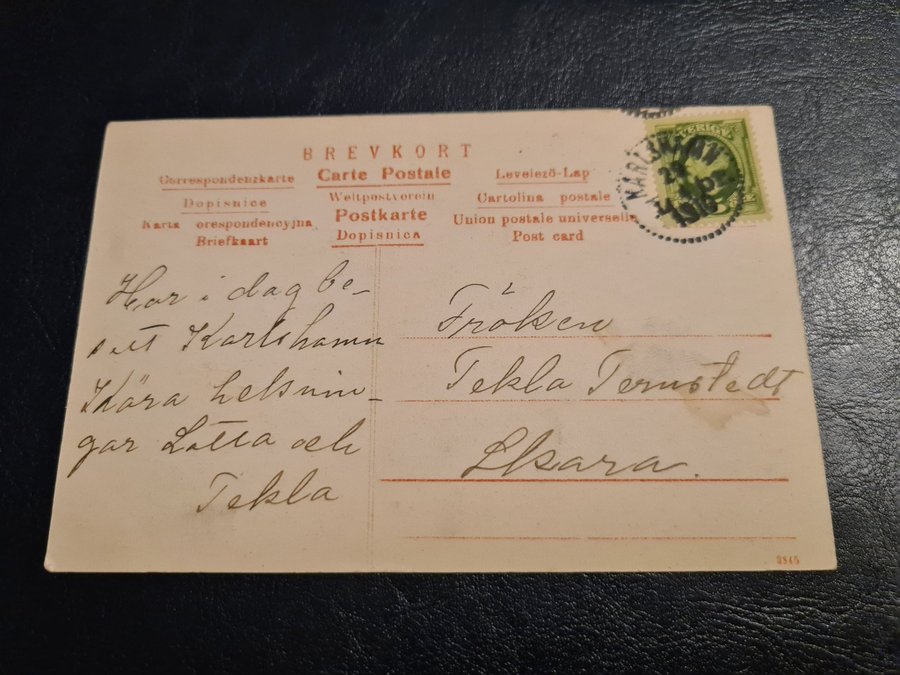 BREVKORT
Correspondenzkarte
Carte Postale
Levelező-Lap
Dopisnice
Weltpostverein
Cartolina postale
Karta orespondencyjna
Postkarte
Union postale universelle
Briefkaart
Dopisnica
Post card
SVERIGE
KARLSHAMN
1910
Har i dag be-
sett Karlshamn
Kära helsnin-
gar Lotta och
Tekla
Fröken
Tekla Ternstedt
Skara.